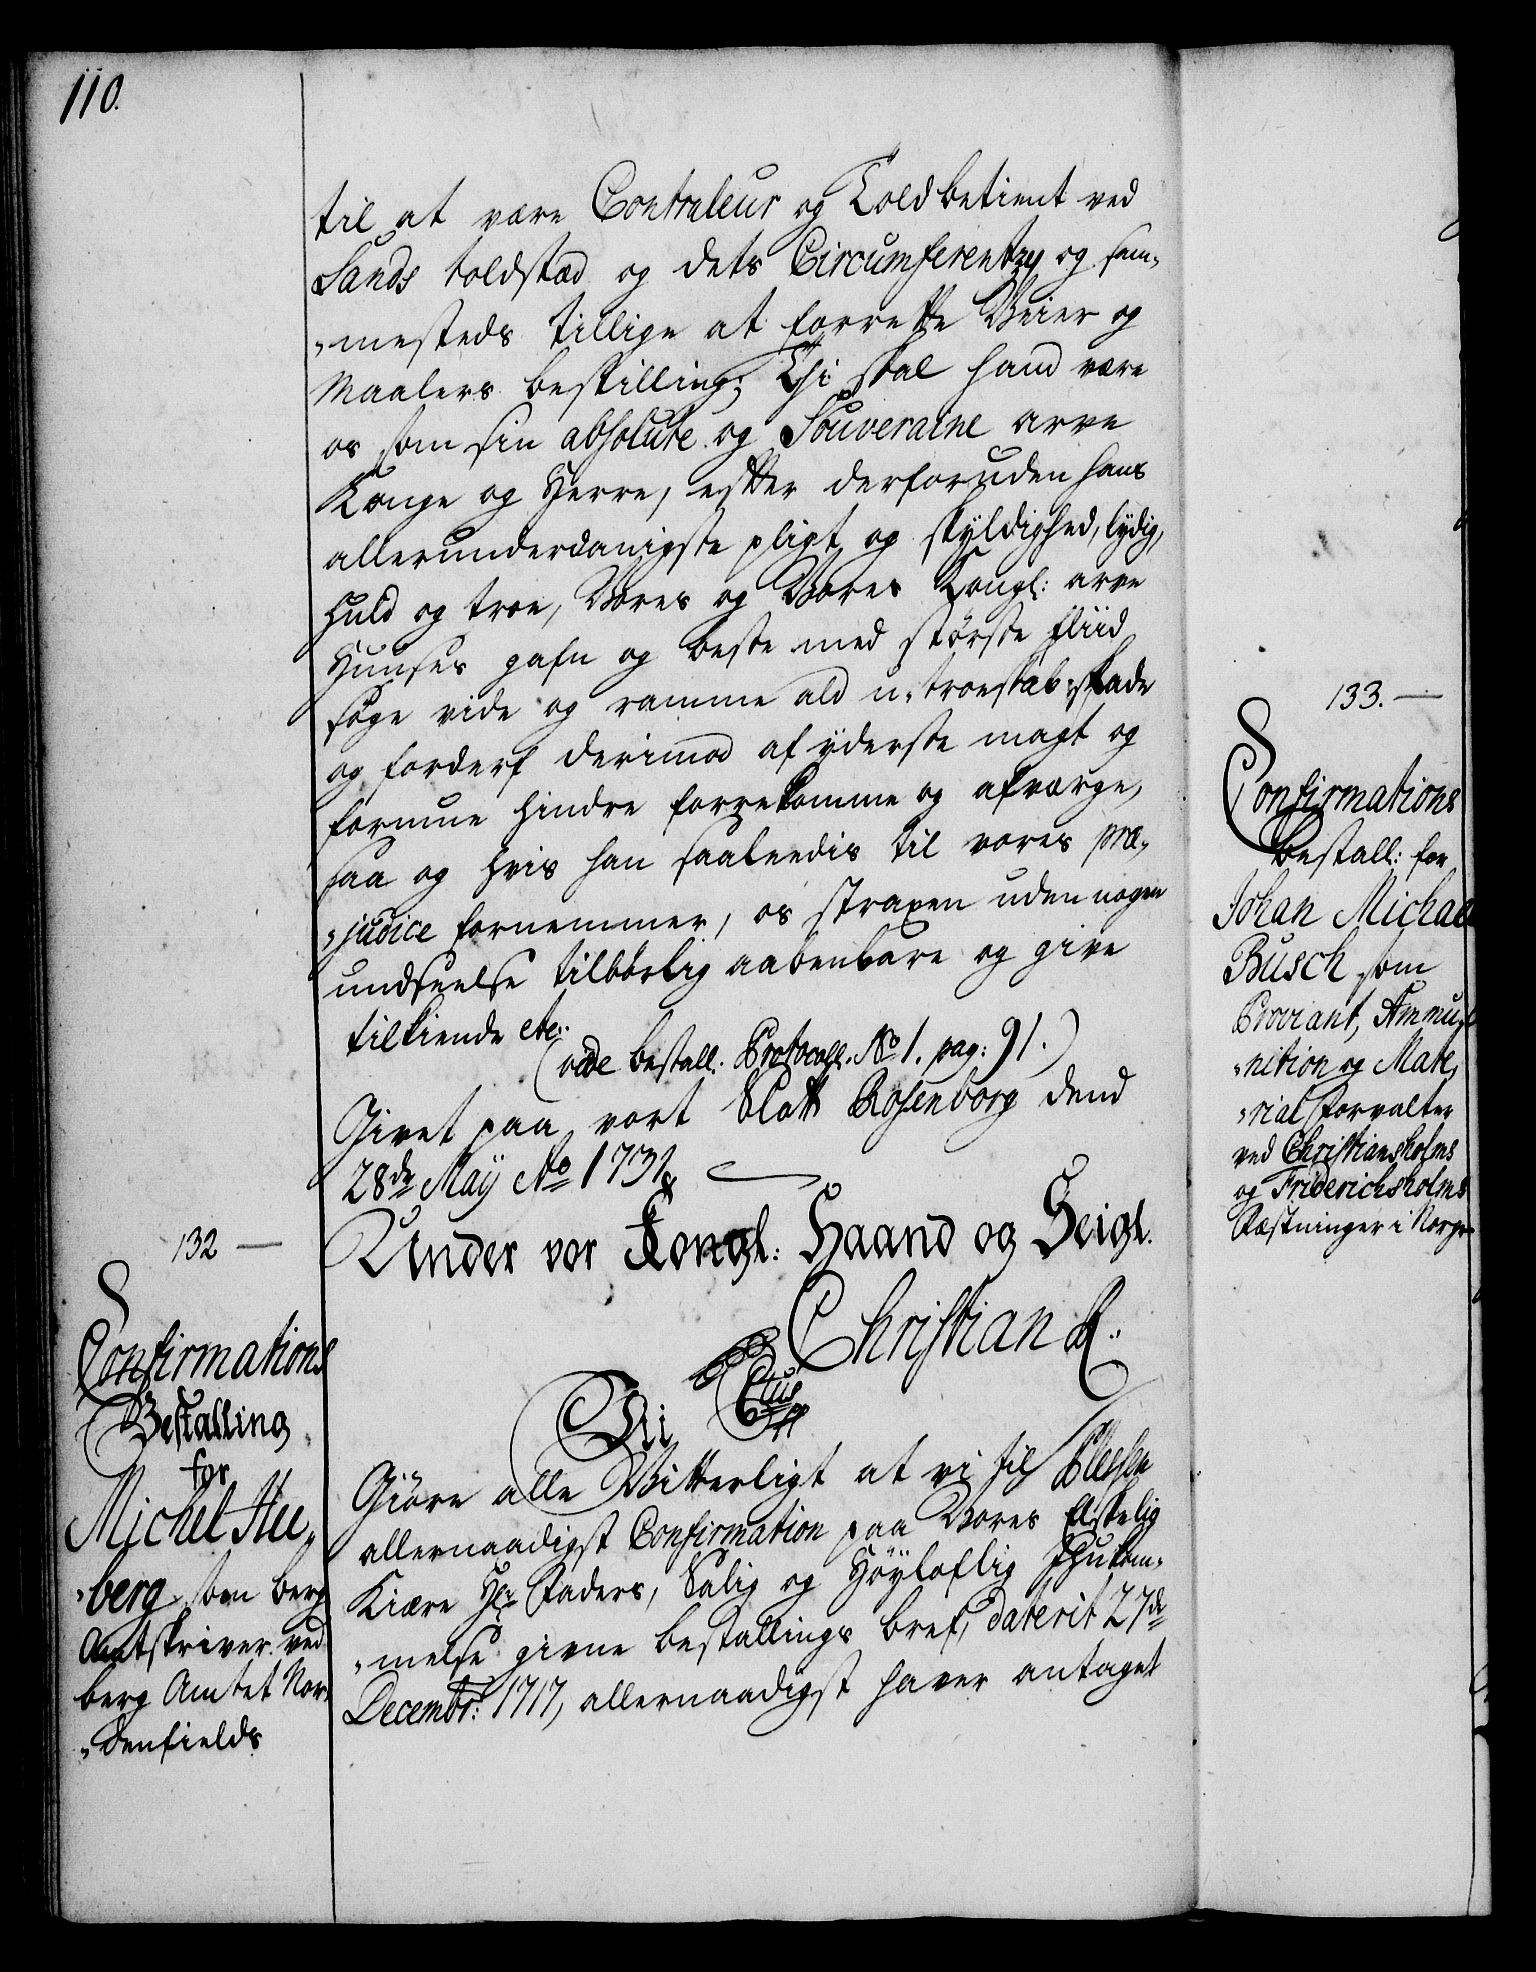 110.
til at være Controleur og Toldbetient ved
Sands toldsted og dets Circumferentzer og sam„
„mesteds tillige at forrette Veier og
Maalers bestilling; Thi skal hand være
os som sin absolute og Souveraine arve
Konge og Herre, efter derforuden hans
allerunderdanigste pligt og skyldighed, lydig,
huld og troe, Vores og Vores Kongl: arve
Huuses gafn og beste med største fliid
søge vide og ramme ald u-troeskab skade
og forderf derimod af yderste magt og
formue hindre forrekomme og afværge,
saa og hvis han saaleedis til vores præ„
„judice fornemmer, os straxen uden nogen
undseelse tilbørlig aabenbare og give
tilkiende etc:
(vide bestall. Protocoll. No 1. pag: 91.)
Givet paa vort Slott Rosenborg dend
28de Maÿ Ao 1731
Under vor Kongl: Haand og Seigl.
Christian R.
132
Confirmations
Bestalling
for
Michel Hee„
„berg som berg
Amtskriver ved
berg Amtet Nor„
„denfields
Vii C6tus
Giøre alle Vitterligt at vi til
allernaadigst Confirmation paa Vores Elskelig
Kiære Hr Faders, Salig og Høyloflig Ihukom„
„melse givne bestallings bref, daterit 27de
Decembr: 1717, allernaadigst haver antaget
133.
Confirmations
bestall: for
Johan Michael
Busch som
Proviant, Ammu„
„nition og Mate„
„rial Forvalter
ved Christiansholms
og Friderichsholms
Fæstninger i Norge